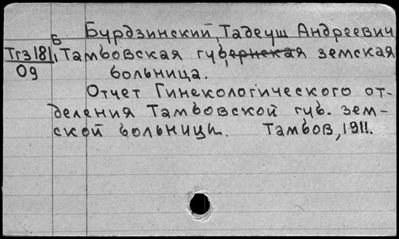 Б Бурдзинский, Тадеуш Андреевич
Тгз18/1 Тамбовская губернская земская
09 больница.
Отчет Гинекологического от-
деления Тамбовской губ. зем-
ской больницы. Тамбов, 1911.